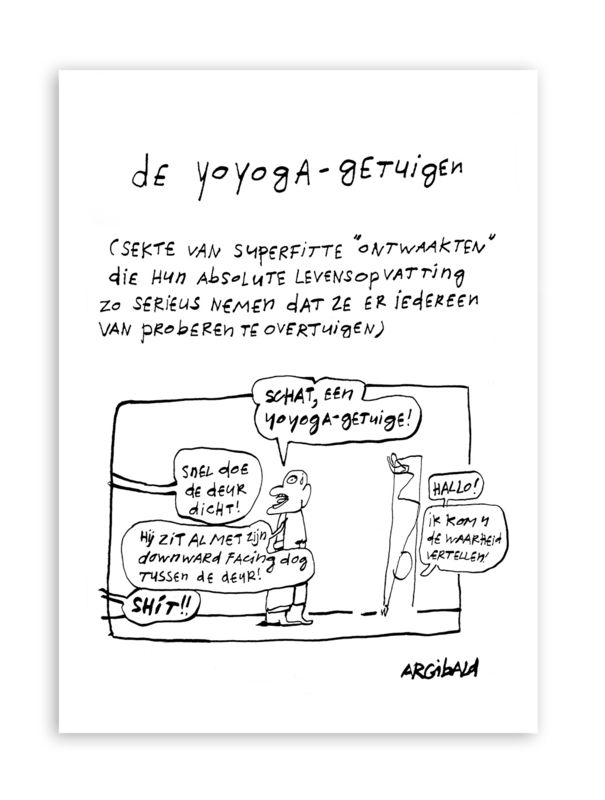 de yoyogA-geTuigen
(SEKTE VAN SUPERFITTE "ONTWAAKTEN"
die HUN ABSOLUTE LEVENSOPVATTING
ZO SERIEUS NEMEN dAT ZE ER iEDEREEN
VAN PROBEREN TE OVERTUIGEN)
SCHAT, EEN
yoyogA-geTuige!
SNEL DOE
dE dEUR
diCHT!
HiJ ZiT AL MET Zijn
downward FACING dog
TUSSEN dE dEUR!
SHiT!!
HALLO!
iK KOM U
dE WAARHEid
VERTELLEN!
ARGibALd